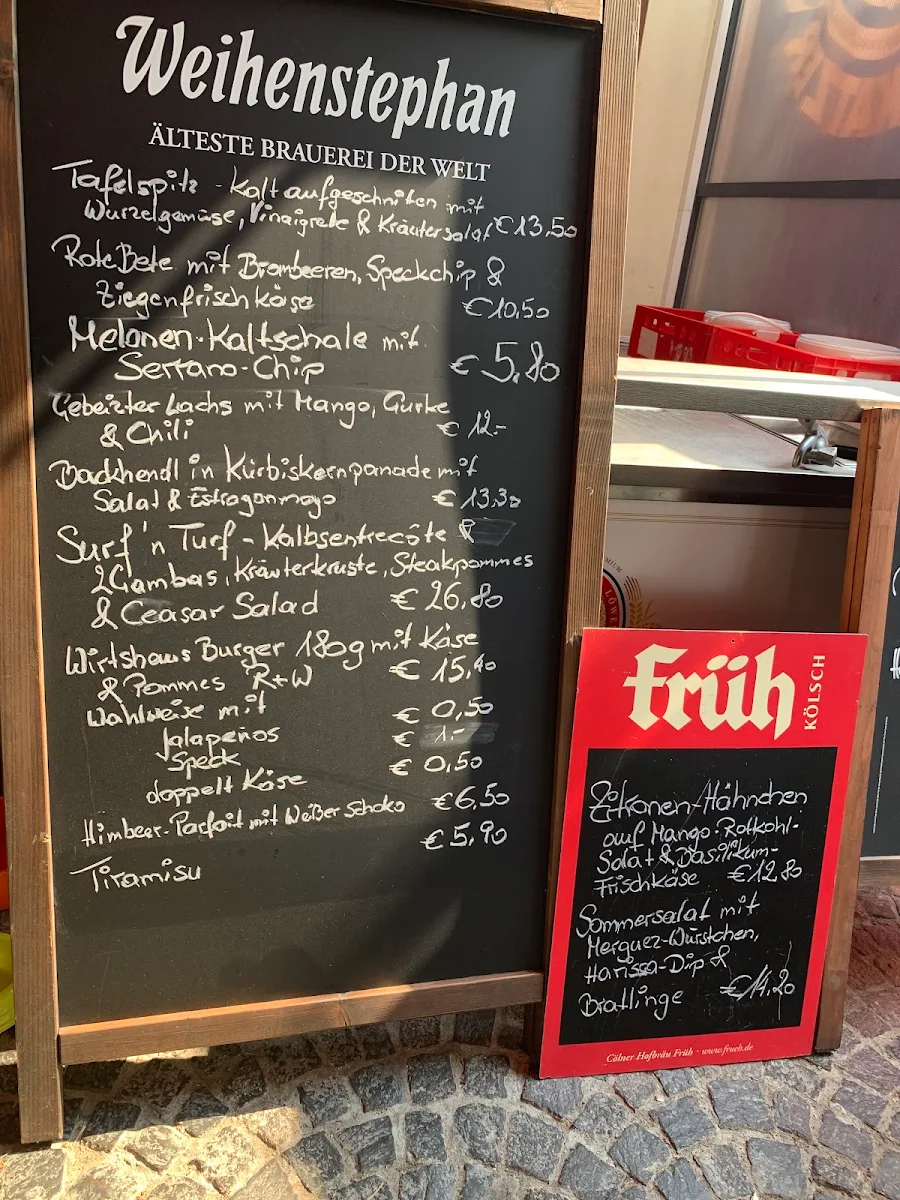 Weihenstephan
ÄLTESTE BRAUEREI DER WELT
Tafelspitz - Kalt aufgeschniten mit
Wurzelgemüse, Vinaigrete & Kräutersalat €13,50
Rote Bete mit Brombeeren, Speckchip &
Ziegenfrischkäse €10,50
Melonen-Kaltschale mit
Serrano-Chip €5,80
Gebeizter Lachs mit Mango, Gurke
& Chili €12.-
Backhendl in Kürbiskernpanade mit
Salat & Estragonmayo €13,30
Surf'n Turf - Kalbsentrecôte &
2 Gambas, Kräuterkruste, Steakpommes
& Ceasar Salad €26,80
Wirtshaus Burger 180g mit Käse
& Pommes R+W €15,40
Wahlweise mit
Jalapeños €0,50
Speck €1.-
doppelt Käse €0,50
Himbeer-Parfait mit Weißer Schoko €6,50
Tiramisu €5,90
LÖWE
früh
KÖLSCH
Zitronen-Hähnchen
auf Mango-Rotkohl-
Salat & Basilikum-
Frischkäse €12,80
Sommersalat mit
Merguez-Würstchen,
Harissa-Dip &
Bratlinge €14,20
Cölner Hofbräu Früh · www.frueh.de